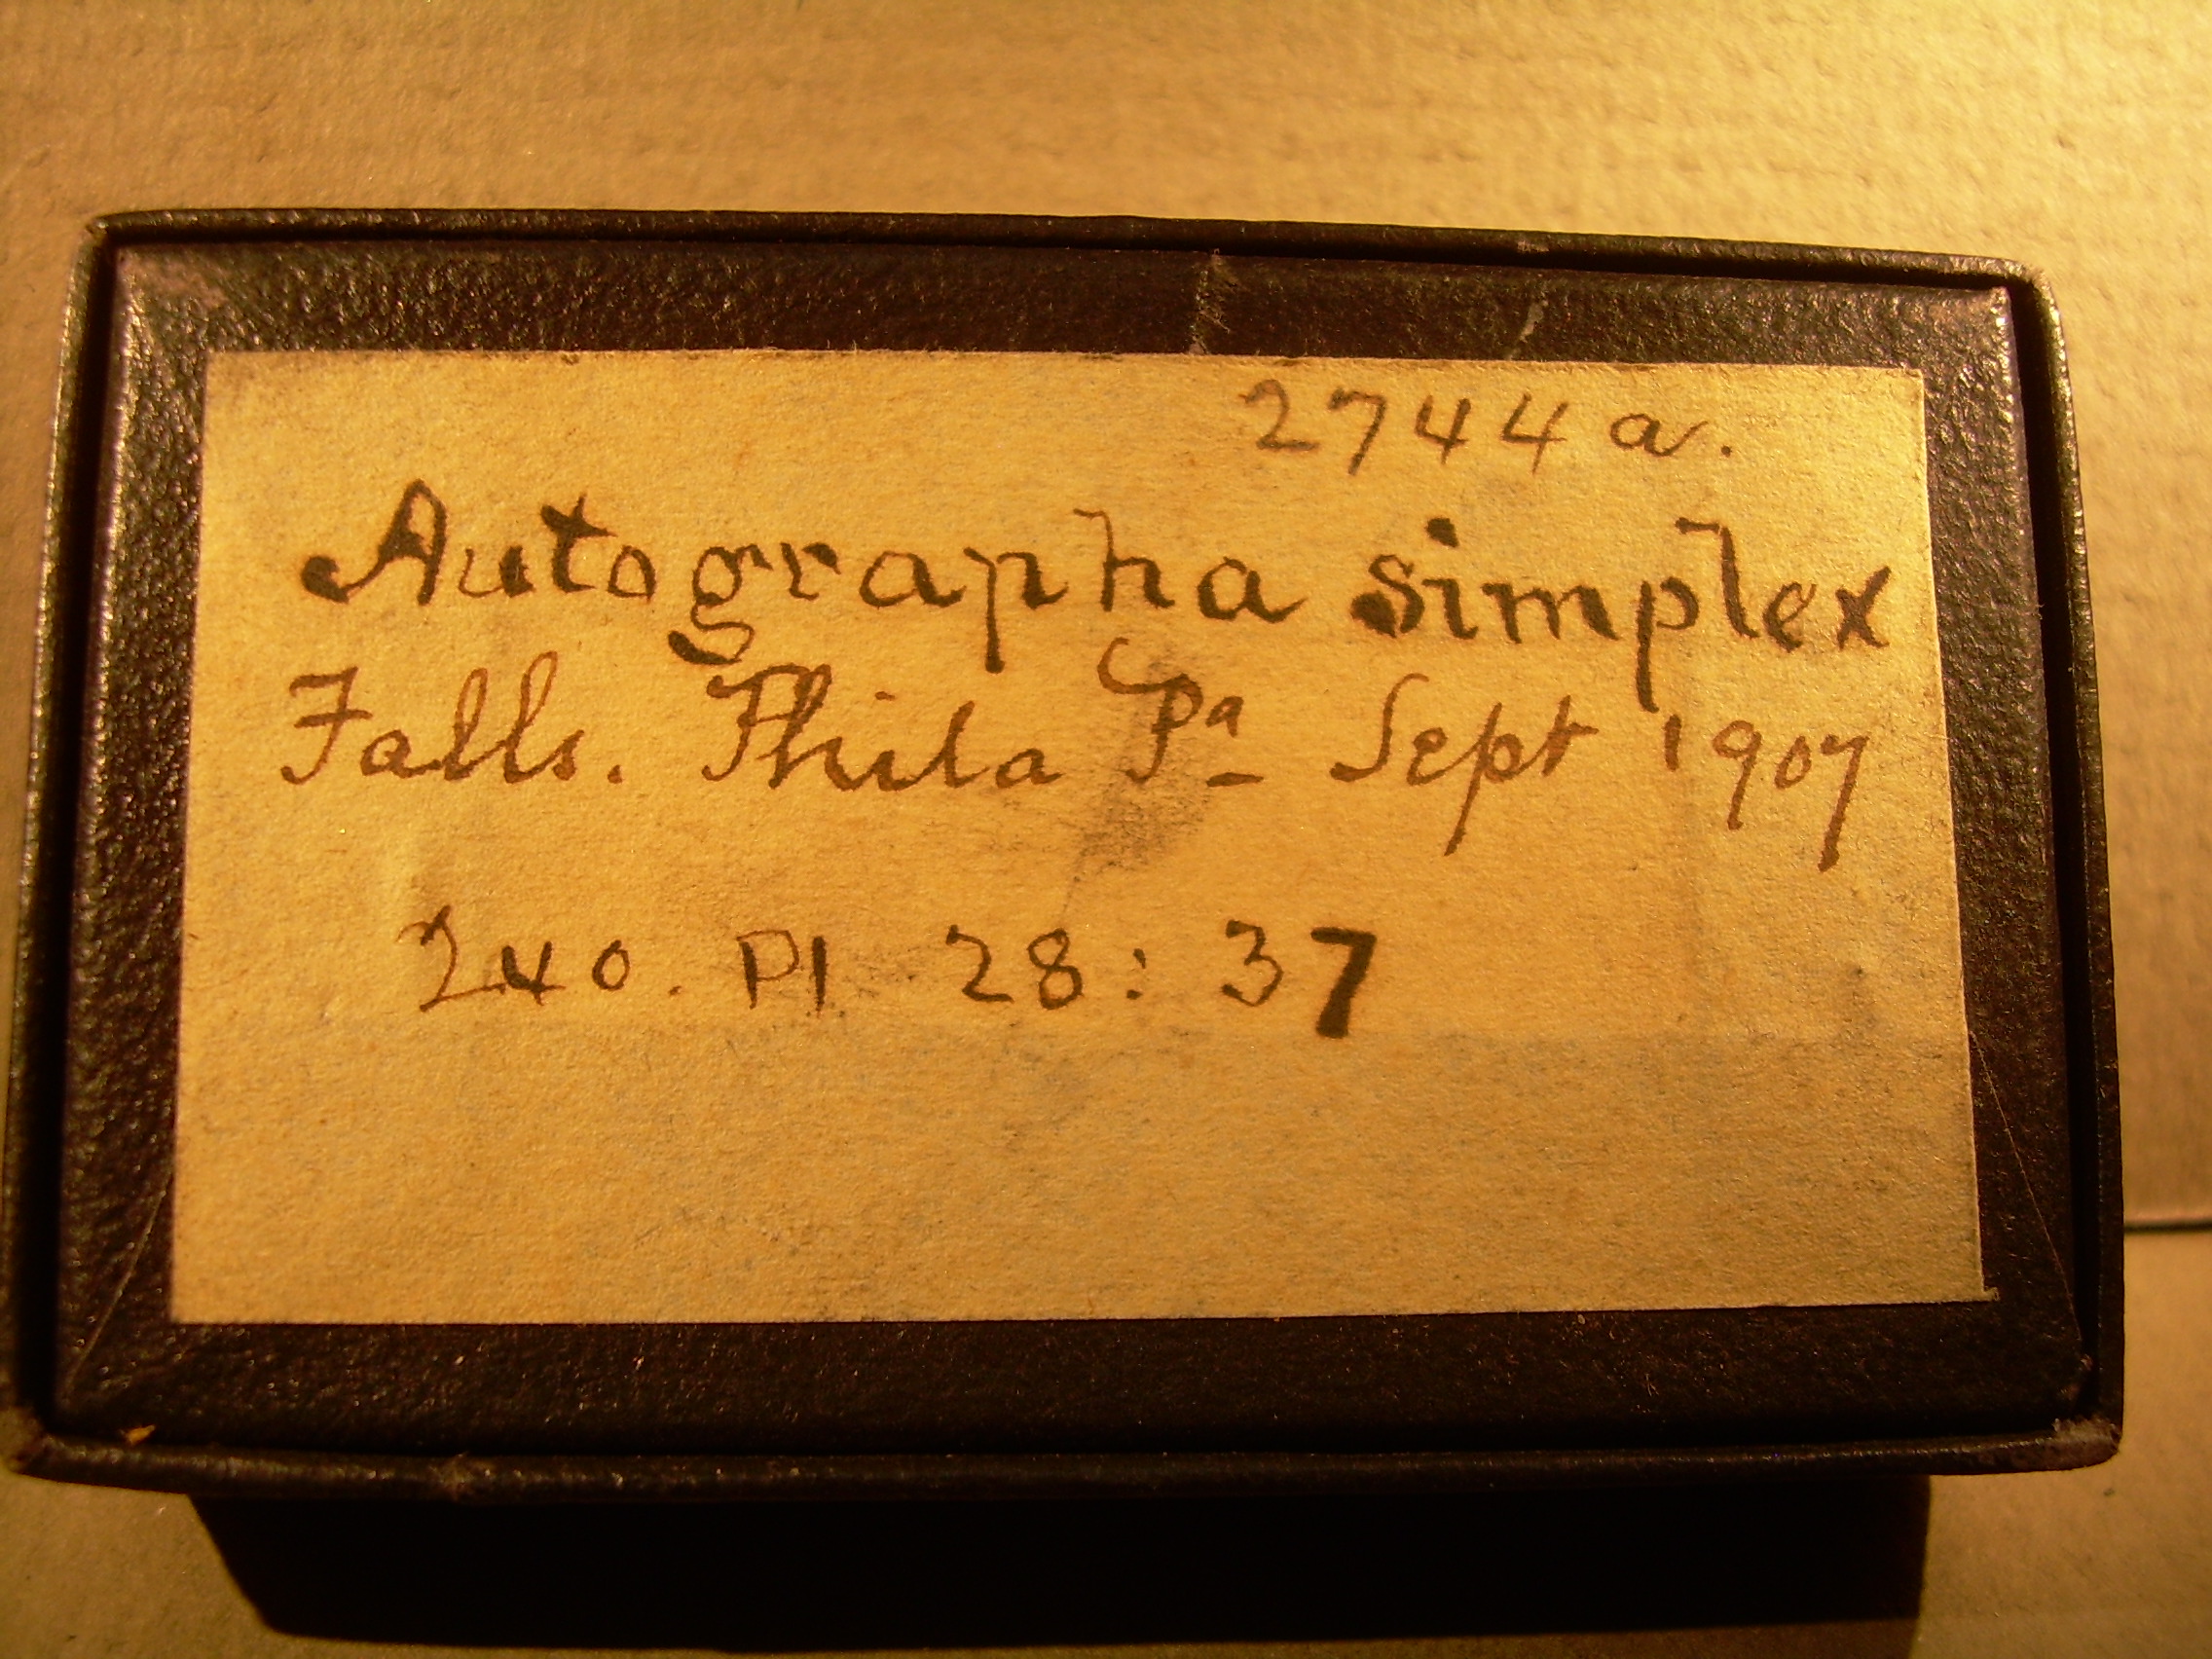 2744 a.
Autographa simplex
Falls. Phila Pa Sept 1907
240. Pl 28 : 37